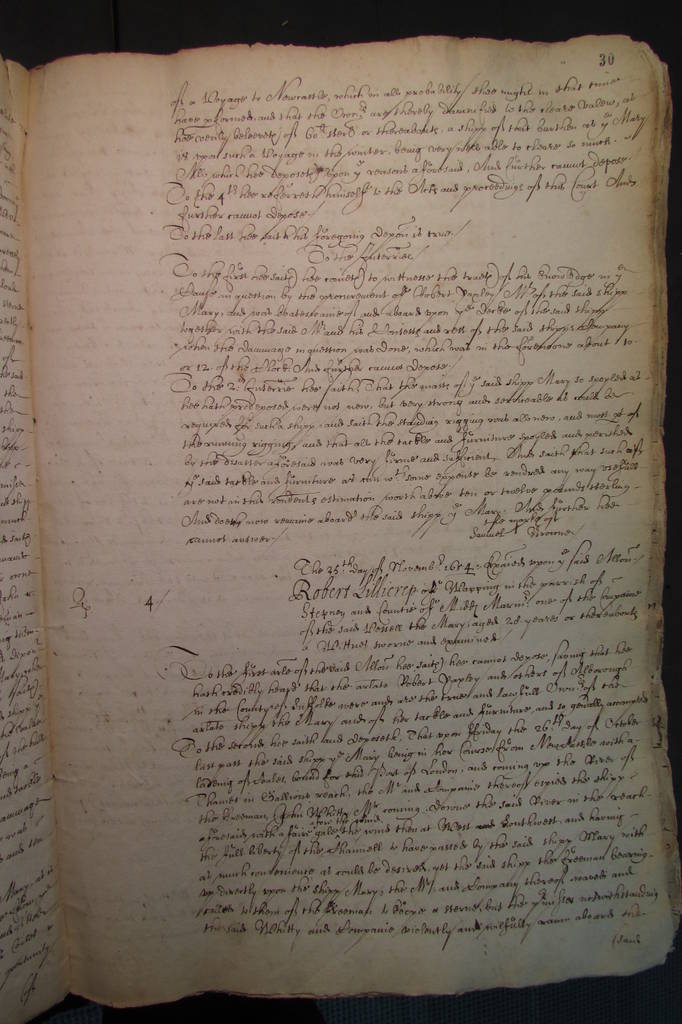 30
of a Voyage to Newcastle, which in all probability shee might in that time
have pformed, and that the Own:rs are thereby damnified to the cleare valew, as
hee verily beleiveth of 60li sterl or thereabouts, a shipp of that burthen as ye Mary
is upon such a Voyage in the winter, being very well able to cleare so much.
All which hee deposeth upon ye reasons aforesaid, And further cannot depose.
To the 4th hee referreth himselfe to the Acts and proceedings of this Court And
further cannot depose./
To the last hee saith his foregoing deposn is true./
To the Interries./
To the first hee saith hee cometh to witnesse the trueth of his knowledge in ye
Cause in question by the procurement of Robert Yaxley Mr of the said shipp
Mary, and was boateswaine of and aboard upon ye decke of the said shipp
together with the said Mr and his and rest of the said shipps Company
when the dammage in question was done, which was in the forenoone about 10
or 12 of the Clock. And further cannot depose./
To the 2:d Interrie hee saith, That the masts of ye said shipp Mary so spoyled as
hee hath predeposed, were not new, but very strong and serviceable as could be
required for such a shipp, and saith the standing rigging was all new, and most pt of
the running rigging, and that all the tackle and furniture spoyled and perished
by the disaster aforesaid was very firme and sufficient, And saith that such of
ye said tackle and furniture as can wth some expence be rendred any way usefull
are not in this rendents estimation worth above ten or twelve pounds sterling
And doeth now remaine aboard the said shipp ye Mary. And further hee
cannot answer./
the marke of
Samuel Browne
The 25th day of Novembr. 1654. Exãied upon ye said Allon.
4./
Robert Lillierep of Wapping in the parrish of
Stepney and Countie of Midd Marinr. one of the Companie
of the said Vessell the Mary, aged 28 yeares or thereabouts
a Wittnes sworne and examined.
To the first arle of the said Allon hee saith hee cannot depose, saving that hee
hath credibly heard that the arlate Robert Yaxley and others of Alborough
in the County of Suffolke were and are the true and lawfull Own:rs of the
arlate shipp the Mary and of her tackle and furniture, and so genally accompted
To the second hee saith and deposeth, That upon ffriday the 26th day of October
last past the said shipp ye Mary being in her Course from Newcastle with a
ladeing of Coales, bound for this Port of London, and coming up the River of
Thames in Gallions reach, the Mr and Companie thereof espied the shipp
the Freeman, (John Whitty Mr) coming downe the said River in the reach
aforesaid, with a faire gale afore the winde, the wind then at West and Southwest, and having
the full liberty of the Channell to have passed by the said shipp Mary with
as much convenience as could be desired, yet the said shipp the Freeman bearing
up directly upon the shipp Mary, the Mr and Company thereof waved and
called to them of the Freeman to keepe a sterne, but the pmisses notwithstanding
the said Whitty and Companie violently and wilfully came aboard the
(said